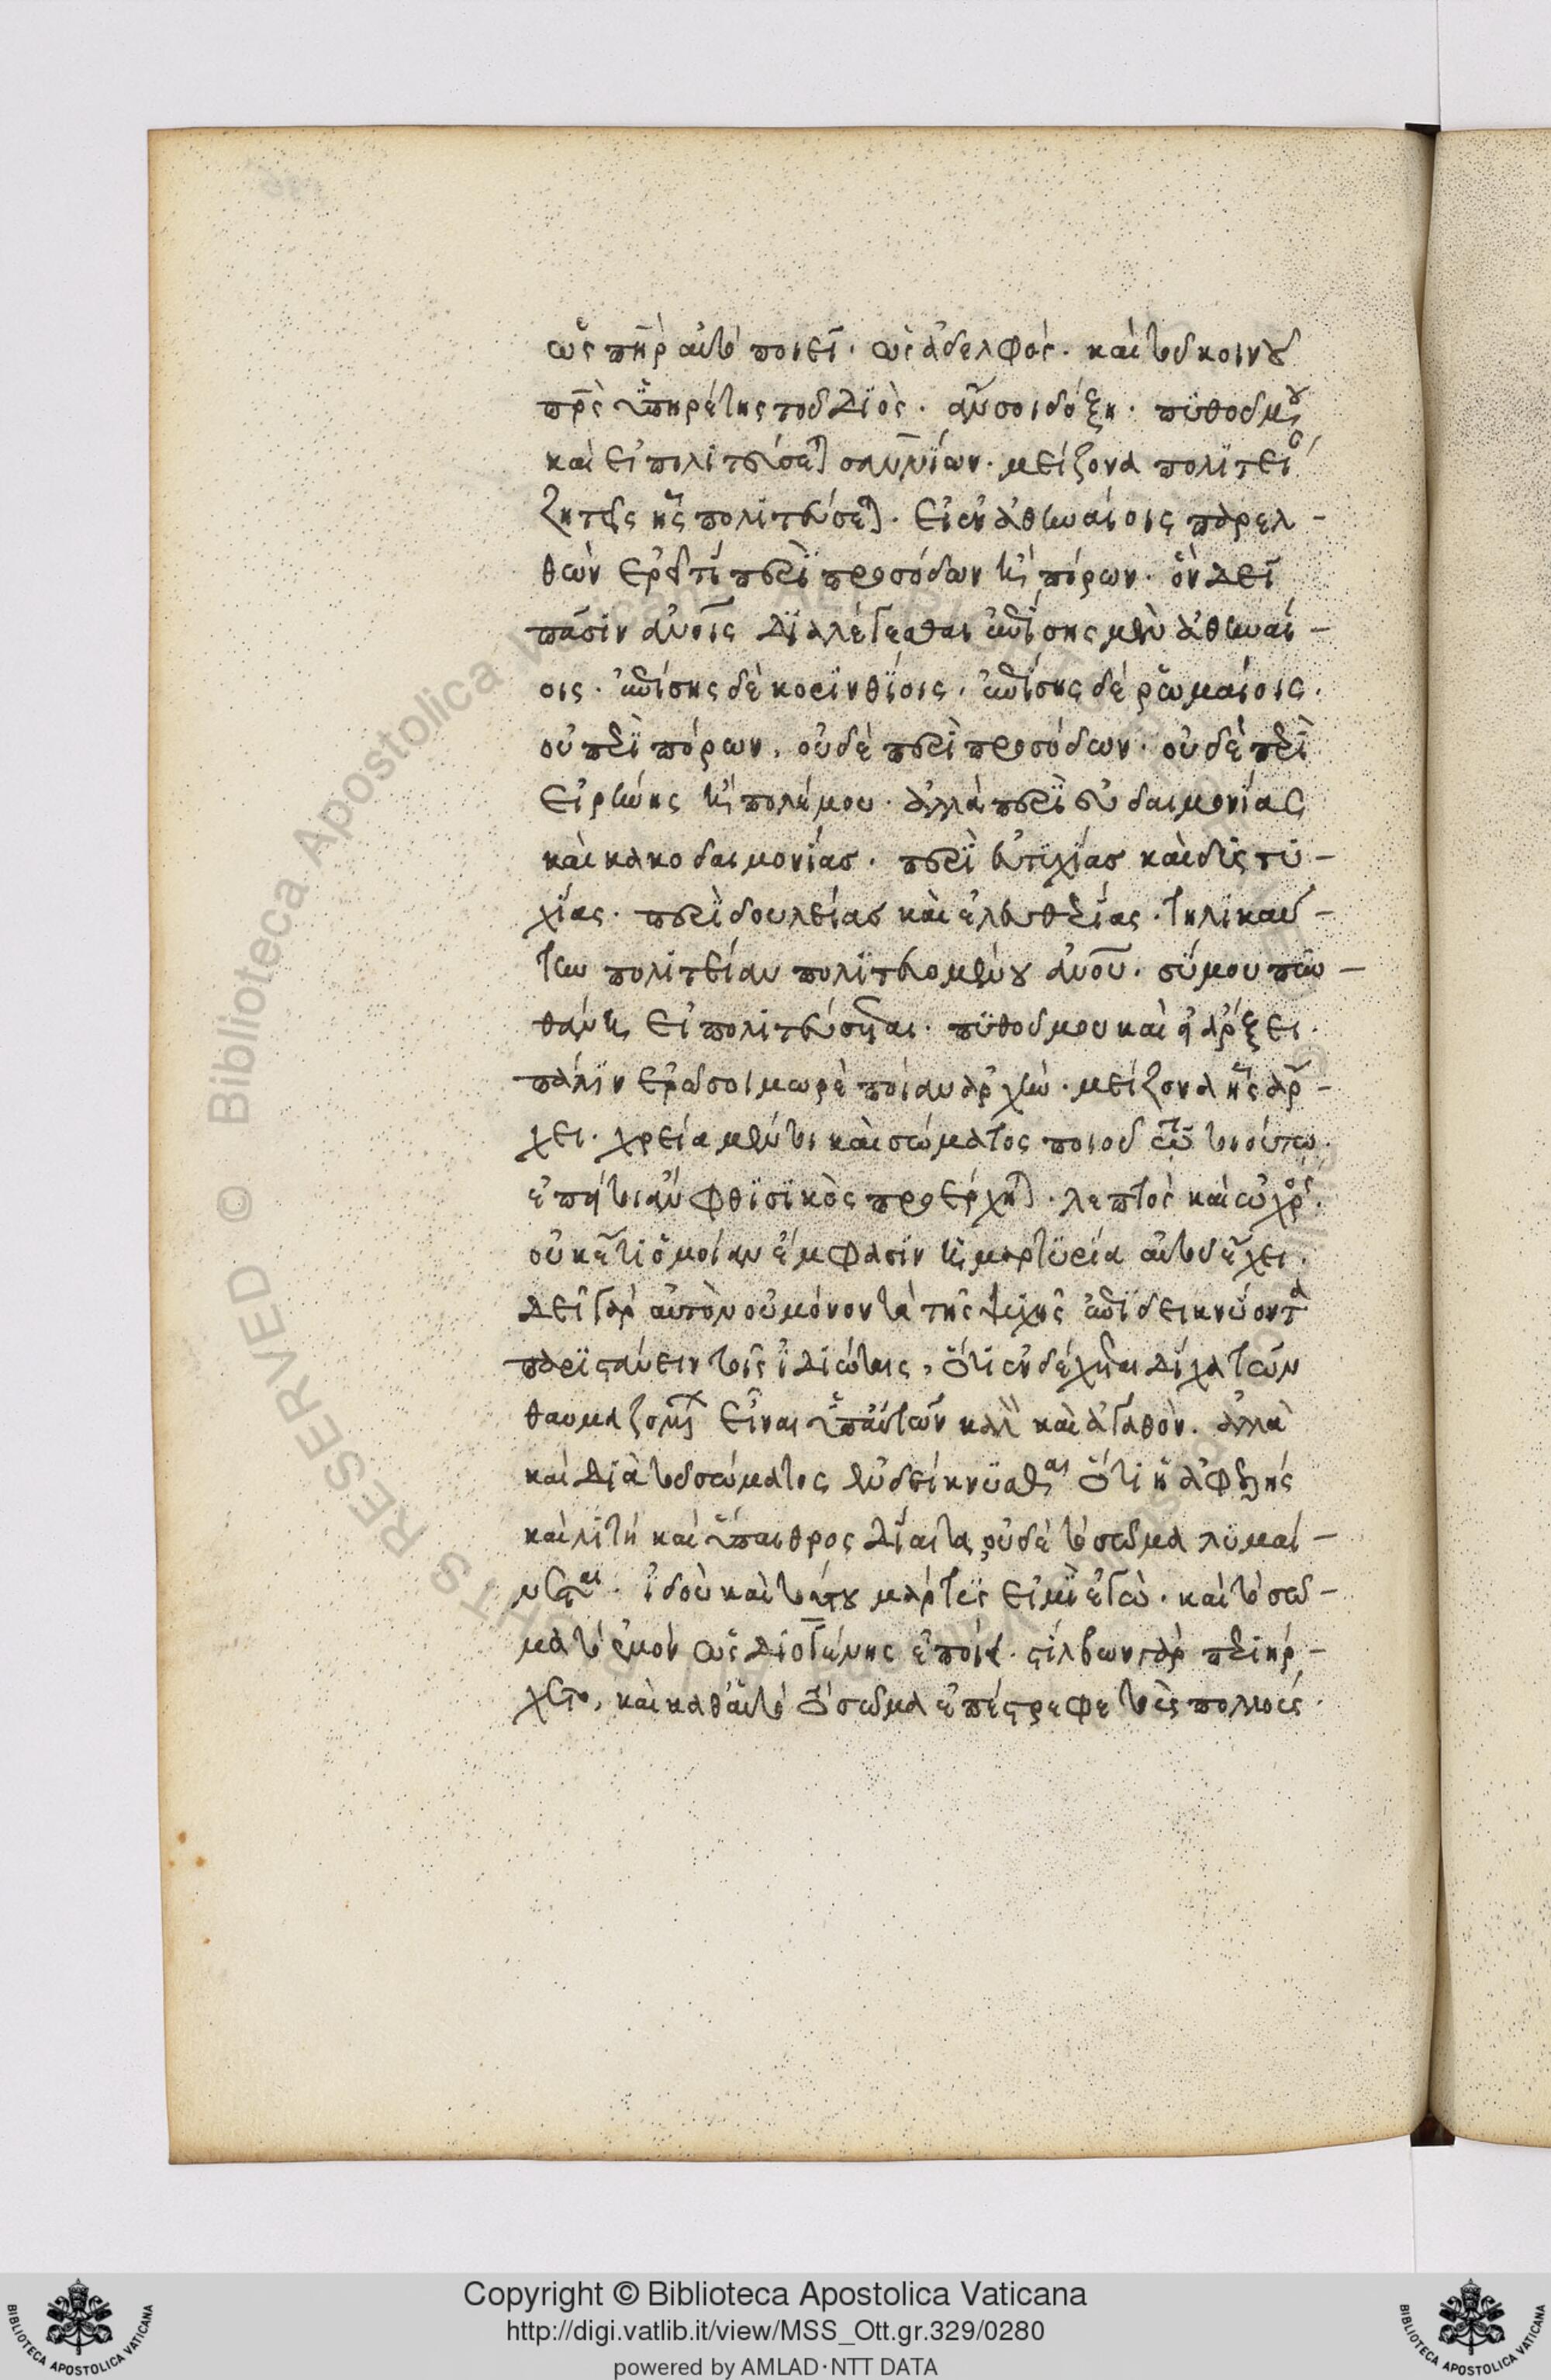 ὡς πὴρ αὐτὸ ποιεῖ. ὡς ἀδελφὸς. καὶ τοῦ κοινοῦ
πρς ὑπηρέτης τοῦ Διὸς. ἄν σοι δόξη. πυθοῦ μου
καὶ εἰ πολιτεύσεται σαννίων. μείζονα πολιτεί
ζητεῖς ἧς πολιτεύσεται. εἰ ἐν ἀθηναίοις παρελ-
θὼν ἐρεῖ τί περὶ προσόδων ἢ πόρων. ὃν δεῖ
πᾶσιν ἀνοις διαλέγεσθαι ἐπίσης μὲν ἀθηναί-
οις. ἐπίσης δὲ κορινθίοις. ἐπίσης δὲ ῥωμαίοις.
οὐ περὶ πόρων, οὐδὲ περὶ προσόδων. οὐδὲ περὶ
εἰρήνης ἢ πολέμου. ἀλλὰ περὶ εὐδαιμονίας
καὶ κακοδαιμονίας. περὶ εὐτυχίας καὶ δυστυ-
χίας. περὶ δουλείας καὶ ἐλευθερίας. τηλικαύ-
την πολιτείαν πολιτευομένου ἀνου. σύ μου πυν-
θάνη εἰ πολιτεύσηται. πυθοῦ μου καὶ εἰ ἄρξει.
πάλιν ἐρῶ σοι μωρὲ ποίαν ἀρχὴν. μείζονα ἧς ἄρ-
χει. χρεία μέντοι καὶ σώματος ποιοῦ τῷ τοιούτω.
ἐπεί τοι ἂν φθισικὸς προέρχηται. λεπτὸς καὶ ὠχρός.
οὐκέτι ὁμοίαν ἔμφασιν ἡ μαρτυρία αὐτοῦ ἔχει.
δεῖ γὰρ αὐτὸν οὐ μόνον τὰ τῆς ψυχῆς ἐπιδεικνύοντα
παριστάνειν τοῖς ἰδιώταις, ὅτι ἐνδέχεται δίχα τῶν
θαυμαζομένων εἶναι ὑπ' αὐτῶν καλὸν καὶ ἀγαθὸν. ἀλλὰ
καὶ διὰ τοῦ σώματος ἐνδείκνυσθαι ὅτι ἡ ἀφελὴς
καὶ λιτὴ καὶ ὕπαιθρος δίαιτα, οὐδὲ τὸ σῶμα λυμαί-
νεται. ἰδοὺ καὶ τούτου μάρτυς εἰμὶ ἐγὼ. καὶ τὸ σῶ-
μα τὸ ἐμὸν ὡς Διογένης ἐποίει. στίλβων γὰρ περιήρ-
χετο, καὶ καθ' αὐτὸ τὸ σῶμα ἐπέστρεφε τοὺς πολλούς.
Copyright © Biblioteca Apostolica Vaticana
http://digi.vatlib.it/view/MSS_Ott.gr.329/0280
powered by AMLAD·NTT DATA